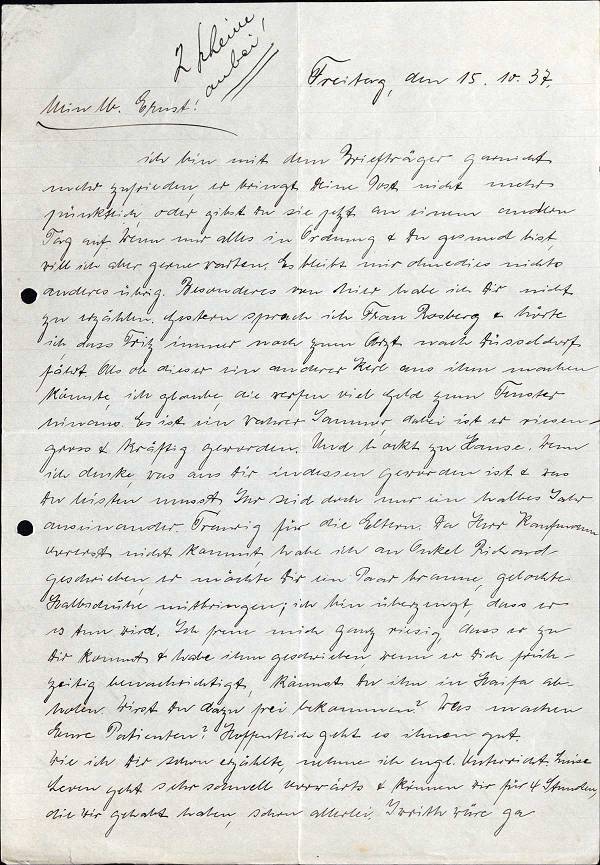 2 Scheine
anbei!
Freitag, den 15. 10. 37.
Mein lb. Ernst!
ich bin mit dem Briefträger garnicht
mehr zufrieden, er bringt Deine Post nicht mehr
pünktlich oder gibst Du sie jetzt an einem andern
Tag auf. Wenn nur alles in Ordnung & Du gesund bist,
will ich aber gerne warten. Es bleibt mir ohnedies nichts
anderes übrig. Besonderes von hier habe ich Dir nicht
zu erzählen. Gestern sprach ich Frau Rosberg & hörte
ich, dass Fritz immer noch zum Arzt nach Düsseldorf
fährt. Als ob dieser ein anderer Kerl aus ihm machen
könnte, ich glaube, die werfen viel Geld zum Fenster
hinaus. Es ist ein wahrer Jammer, dabei ist er riesen-
gross & kräftig geworden. Und hockt zu Hause. Wenn
ich denke, was aus Dir indessen geworden ist & was
Du leisten musst, Ihr seid doch nur ein halbes Jahr
auseinander. Traurig für die Eltern. Da Herr Kaufmann
vorerst nicht kommt, habe ich an Onkel Richard
geschrieben, er möchte Dir ein Paar braune, gelochte
Halbschuhe mitbringen; ich bin überzeugt, dass er
es tun wird. Ich freue mich ganz riesig, dass er zu
Dir kommt & habe ihm geschrieben wenn er Dich früh-
zeitig benachrichtigt, kannst Du ihn in Haifa ab-
holen. Wirst Du dazu frei bekommen? Was machen
Eure Patienten? Hoffentlich geht es ihnen gut.
Wie ich Dir schon erzählte, nehme ich engl. Unterricht.
geht sehr schnell vorwärts & können wir für 4 Stunden,
die wir gehabt haben, schon allerlei. Iwrith wäre ja